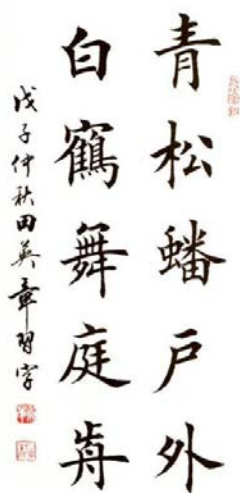 青松蟠戶外
白鶴舞庭前
戊子仲秋田英章習字